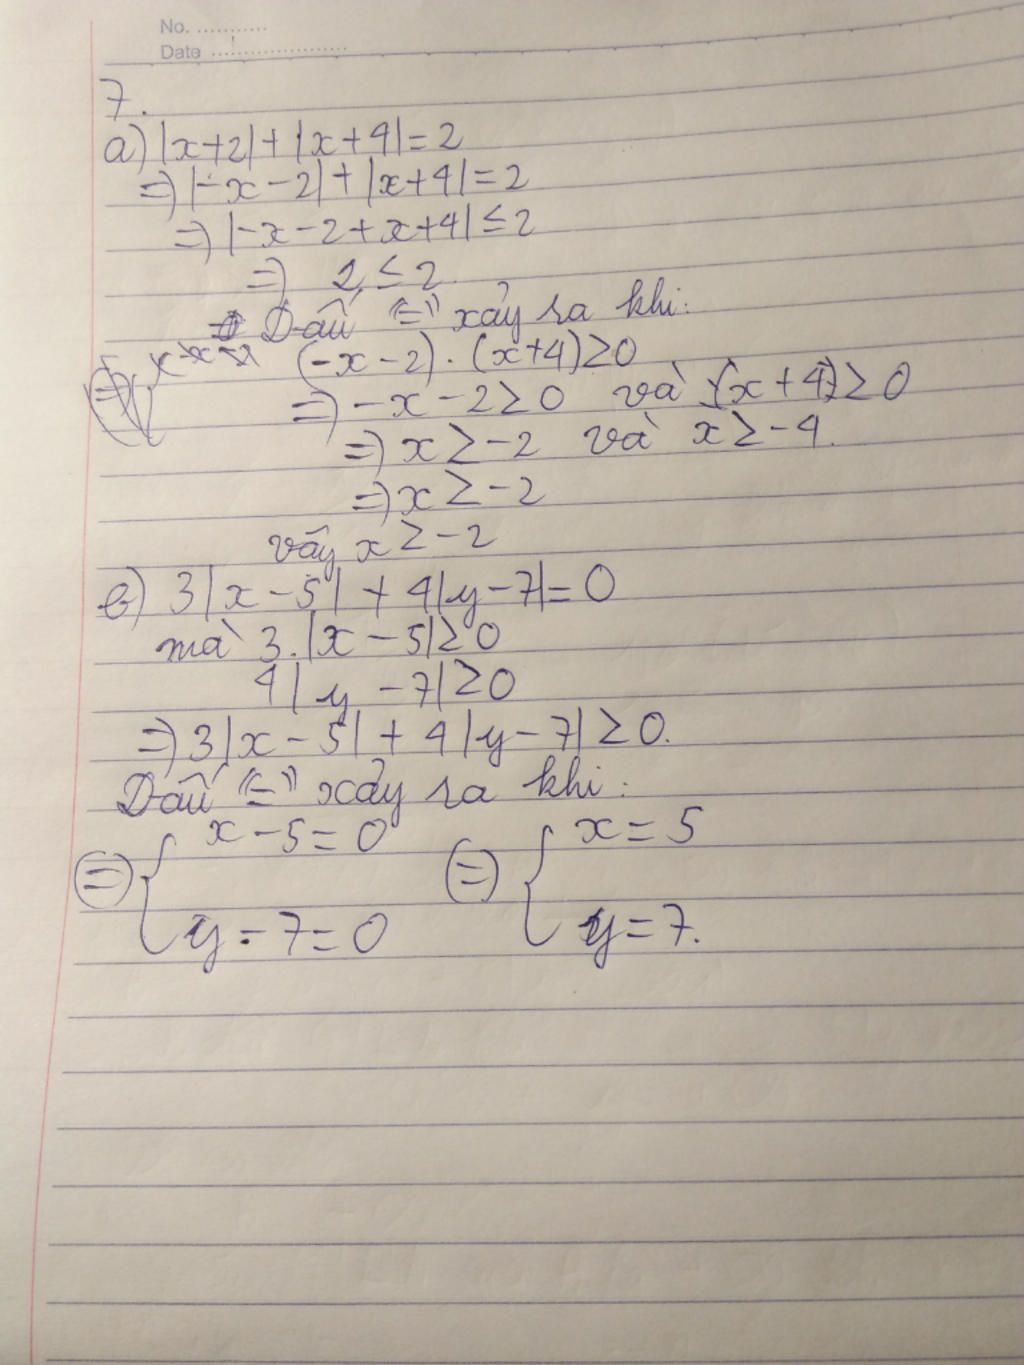 No. ............
Date ........................
7.
a) |x+2| + |x+4| = 2
=> |-x-2| + |x+4| = 2
=> |-x-2+x+4| ≤ 2
=> 2 ≤ 2
Dấu "=" xảy ra khi:
(-x-2).(x+4) ≥ 0
=> -x-2 ≥ 0 và (x+4) ≥ 0
=> x ≥ -2 và x ≥ -4.
=> x ≥ -2
vây x ≥ -2
b) 3|x-5| + 4|y-7| = 0
mà 3.|x-5| ≥ 0
4|y-7| ≥ 0
=> 3|x-5| + 4|y-7| ≥ 0.
Dấu "=" xảy ra khi:
(=) { x-5=0 (=) { x=5
y-7=0 y=7.